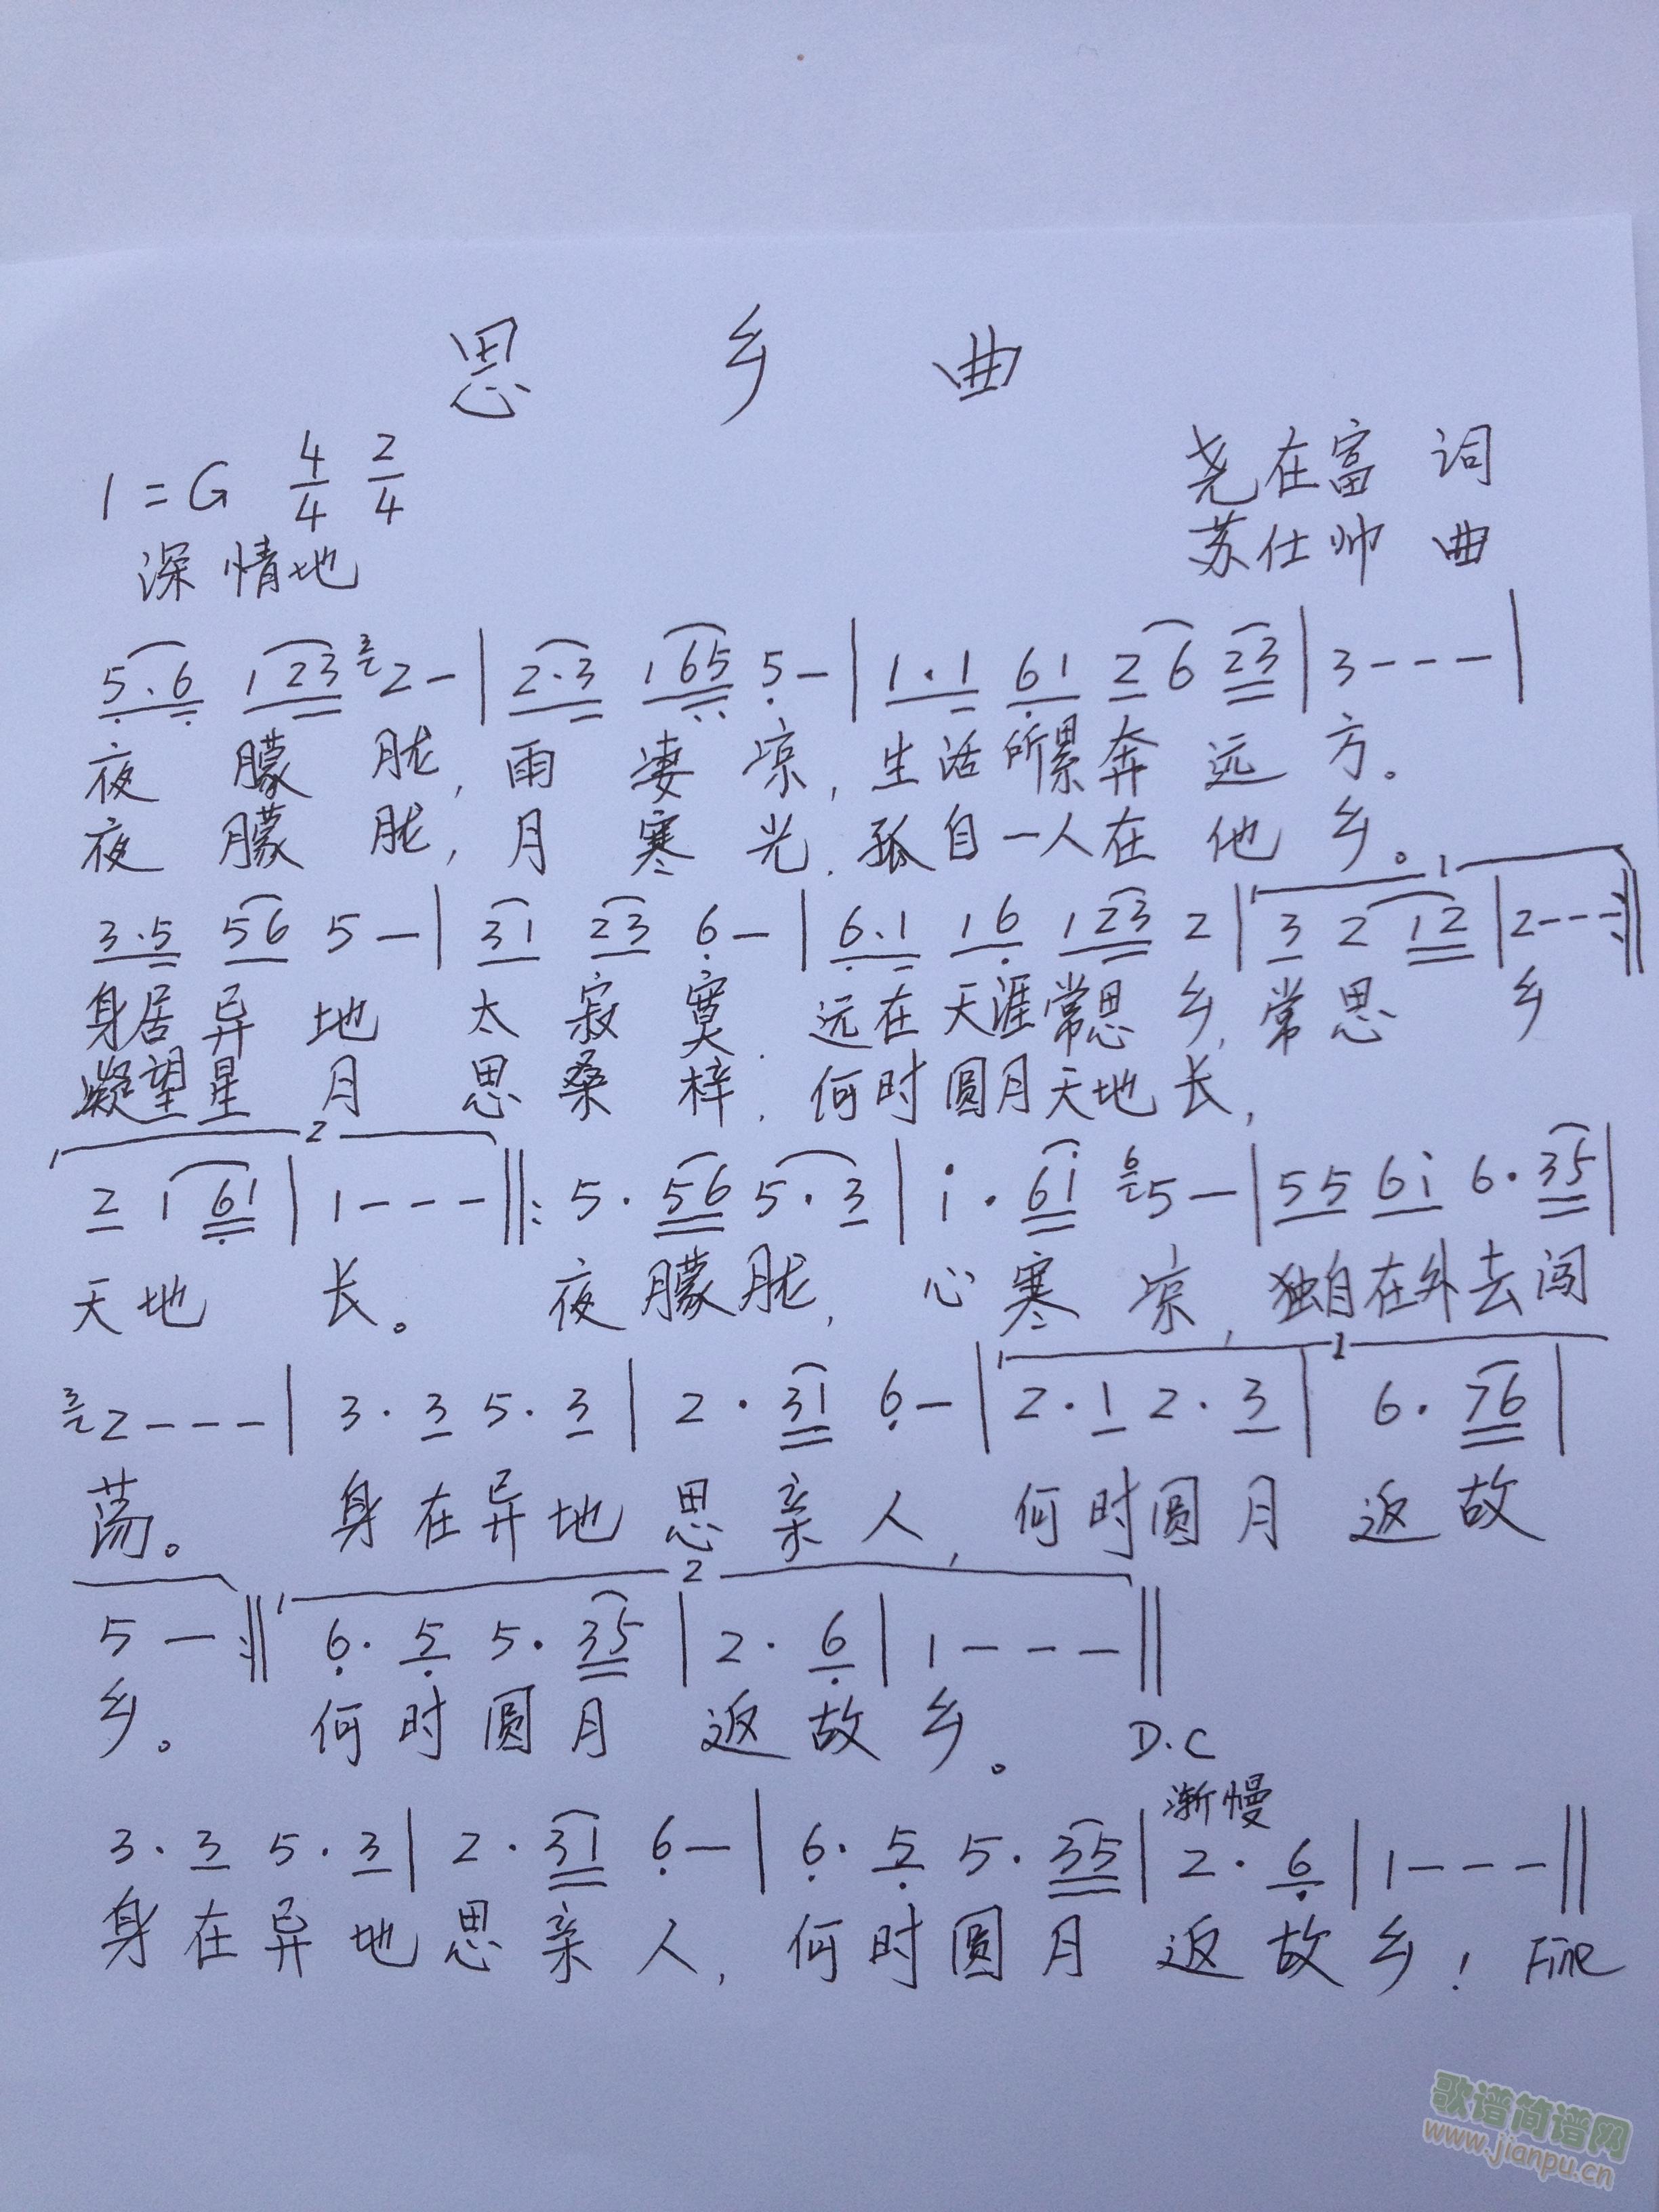 思乡曲
1=G 4/4 2/4
尧在富 词
深情地
苏仕帅 曲
5·6 123 3 2 - | 2·3 165 5 - | 1·1 61 2 6 23 | 3 - - - |
夜朦胧,雨凄凉,生活所累奔远方。
夜朦胧,月寒光,孤自一人在他乡。
1
3·5 56 5 - | 31 23 6 - | 6·1 16 123 2 | 3 2 12 | 2 - - - :||
身居异地太寂寞,远在天涯常思乡,常思乡
凝望星月思桑梓,何时圆月天地长,
2
2 1 61 | 1 - - - ||: 5·56 5·3 | i·6i 6 5 - | 55 6i 6·35 |
天地长。夜朦胧,心寒凉,独自在外去闯
1
3 2 - - - | 3·3 5·3 | 2·31 6 - | 2·1 2·3 | 6·76 |
荡。身在异地思亲人,何时圆月返故
2
5 - :|| 6·5 5·35 | 2·6 | 1 - - - ||
乡。何时圆月返故乡。 D.C
渐慢
3·3 5·3 | 2·31 6 - | 6·5 5·35 | 2·6 | 1 - - - ||
身在异地思亲人,何时圆月返故乡! Fine
歌谱简谱网
www.jianpu.cn